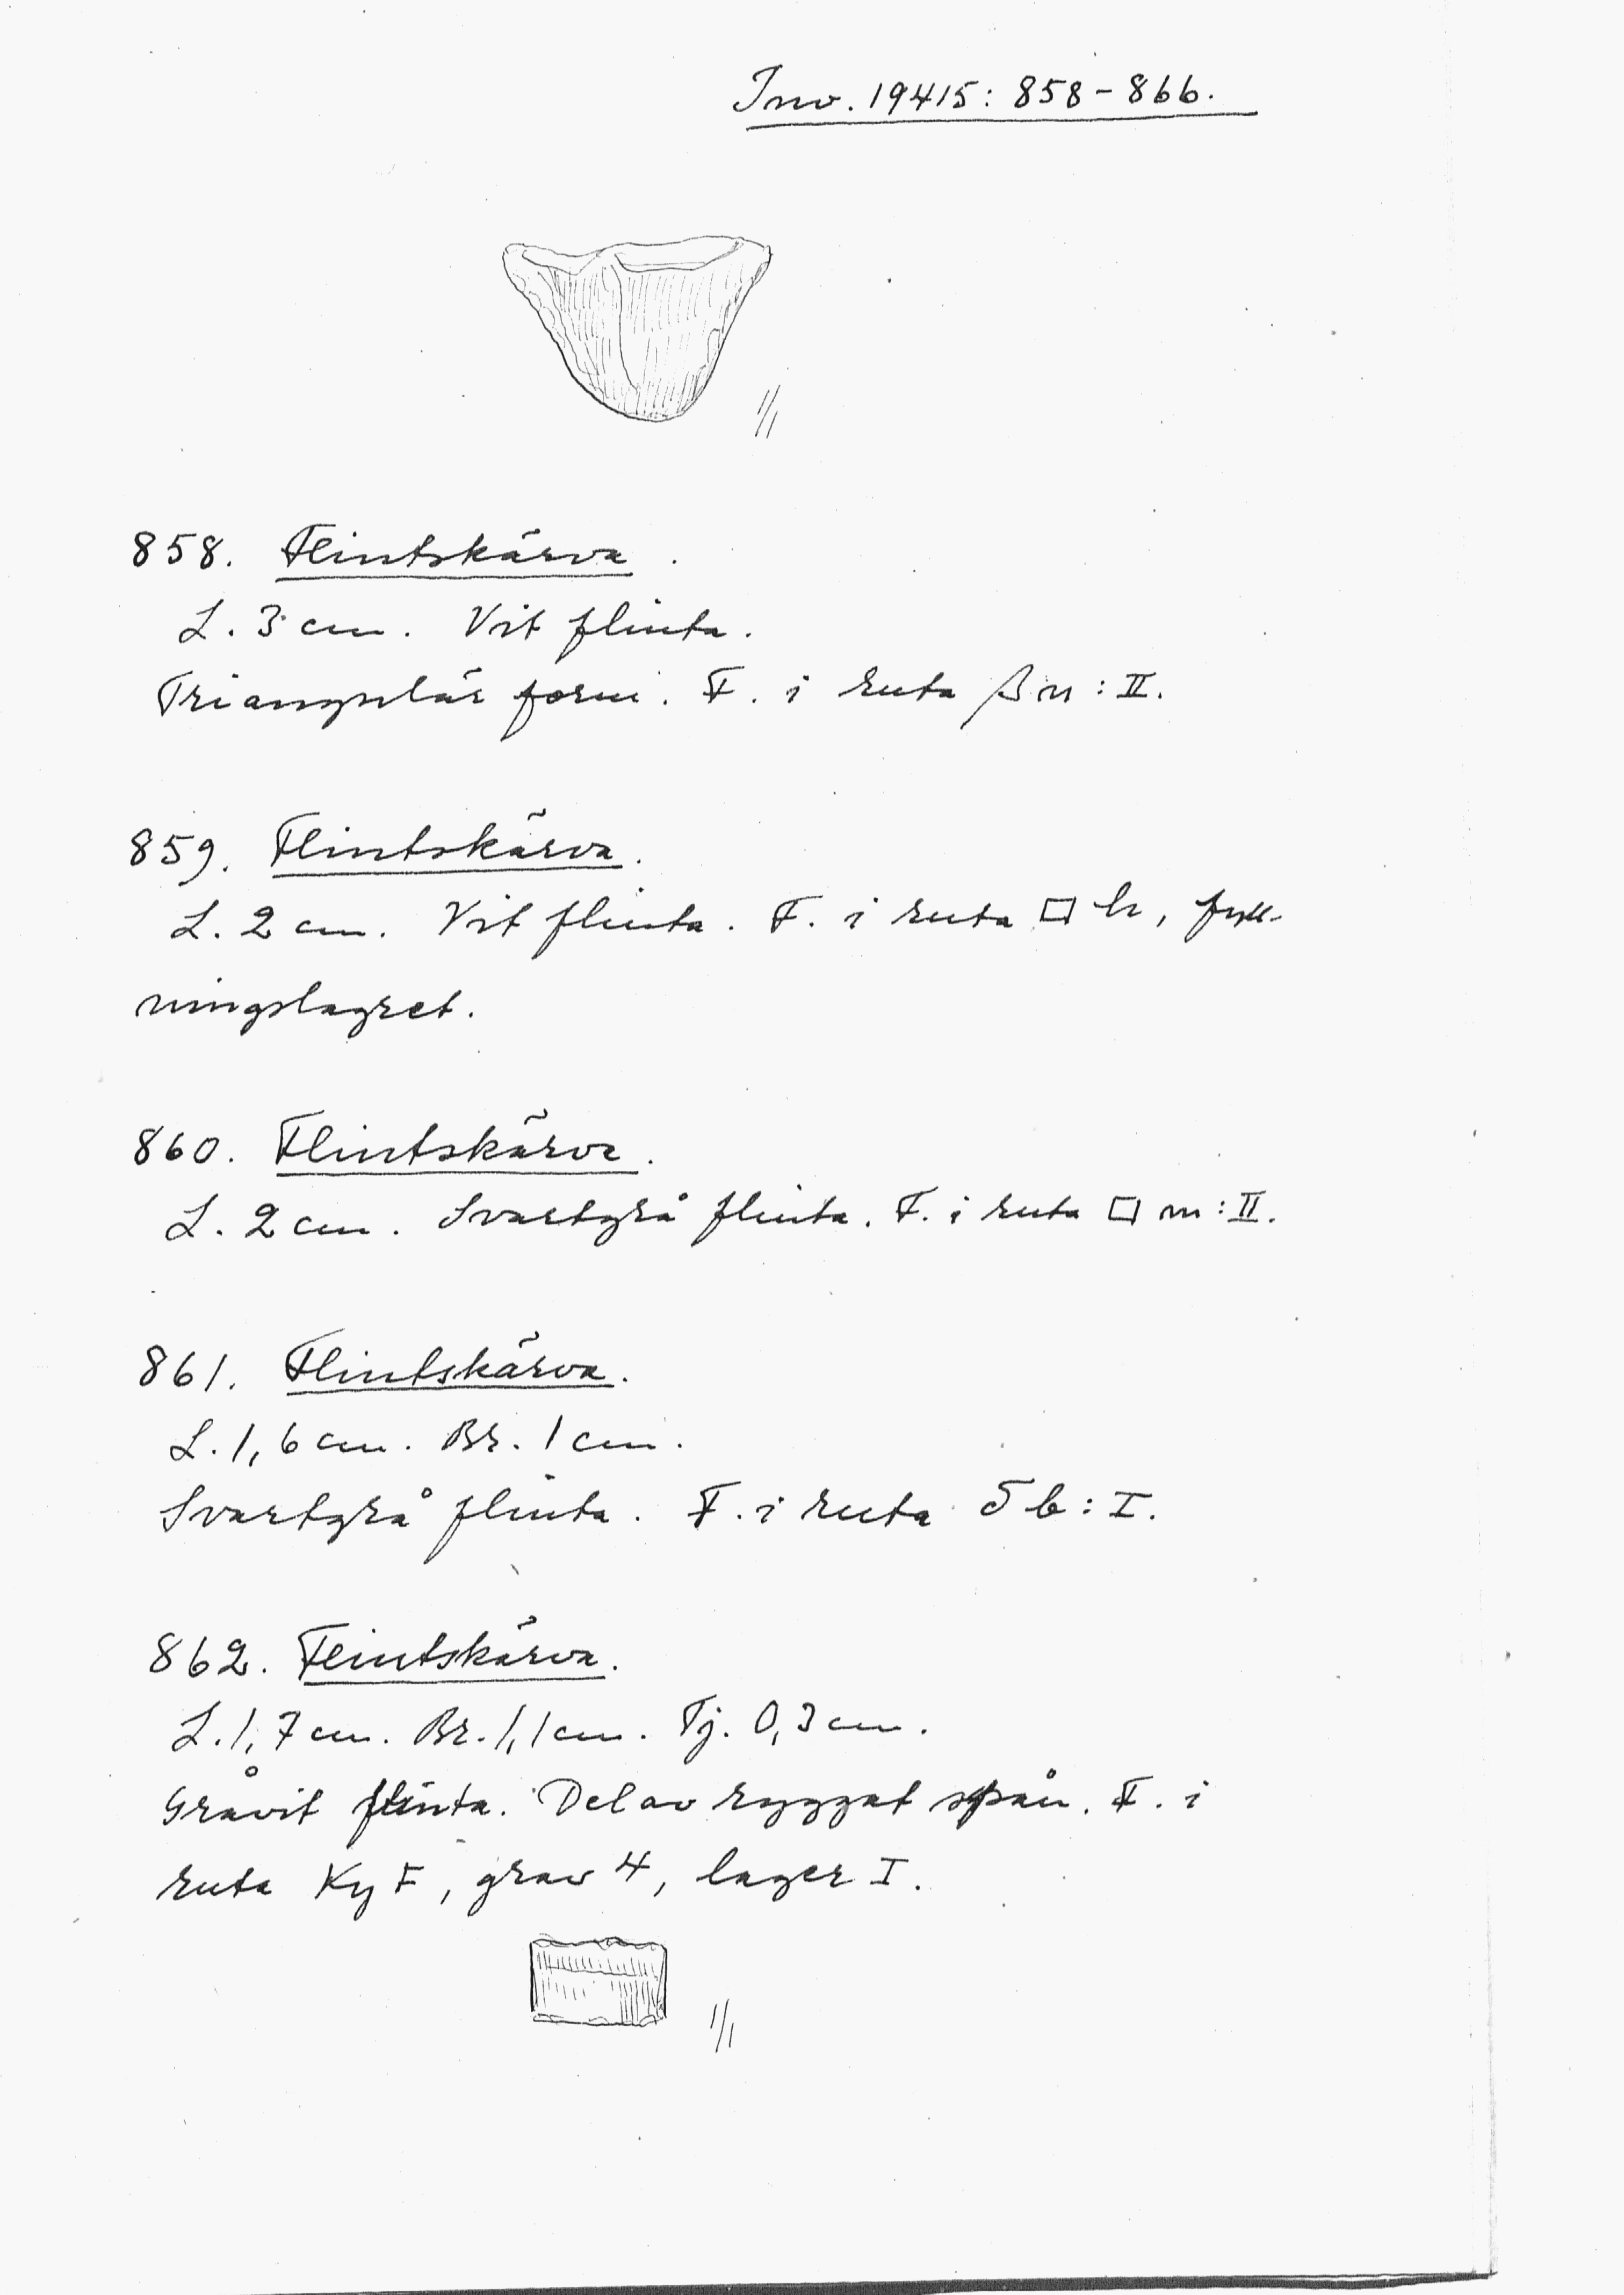 Inv. 19415: 858-866.
1/1
858. Flintskärva.
L. 3 cm. Vit flinta.
Triangulär form. F. i ruta β n: II.
859. Flintskärva.
L. 2 cm. Vit flinta. F. i ruta □ h, fyll-
ningslagret.
860. Flintskärva.
L. 2 cm. Svartgrå flinta. F. i ruta □ m: II.
861. Flintskärva.
L. 1,6 cm. Br. 1 cm.
Svartgrå flinta. F. i ruta δ b: I.
862. Flintskärva.
L. 1,7 cm. Br. 1,1 cm. Tj. 0,3 cm.
Gråvit flinta. Del av ryggat spån. F. i
ruta Ky F, grav 4, lager I.
1/1